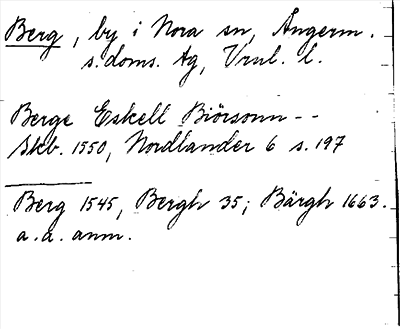 Berg, by i Nora sn, Ångerm.
s. doms. tg, Vrnl. l.
Berge Eskell Biörsonn - -
Skb. 1550, Nordlander 6 s. 197
Berg 1545, Bergh 35; Bärgh 1663.
a. a. anm.